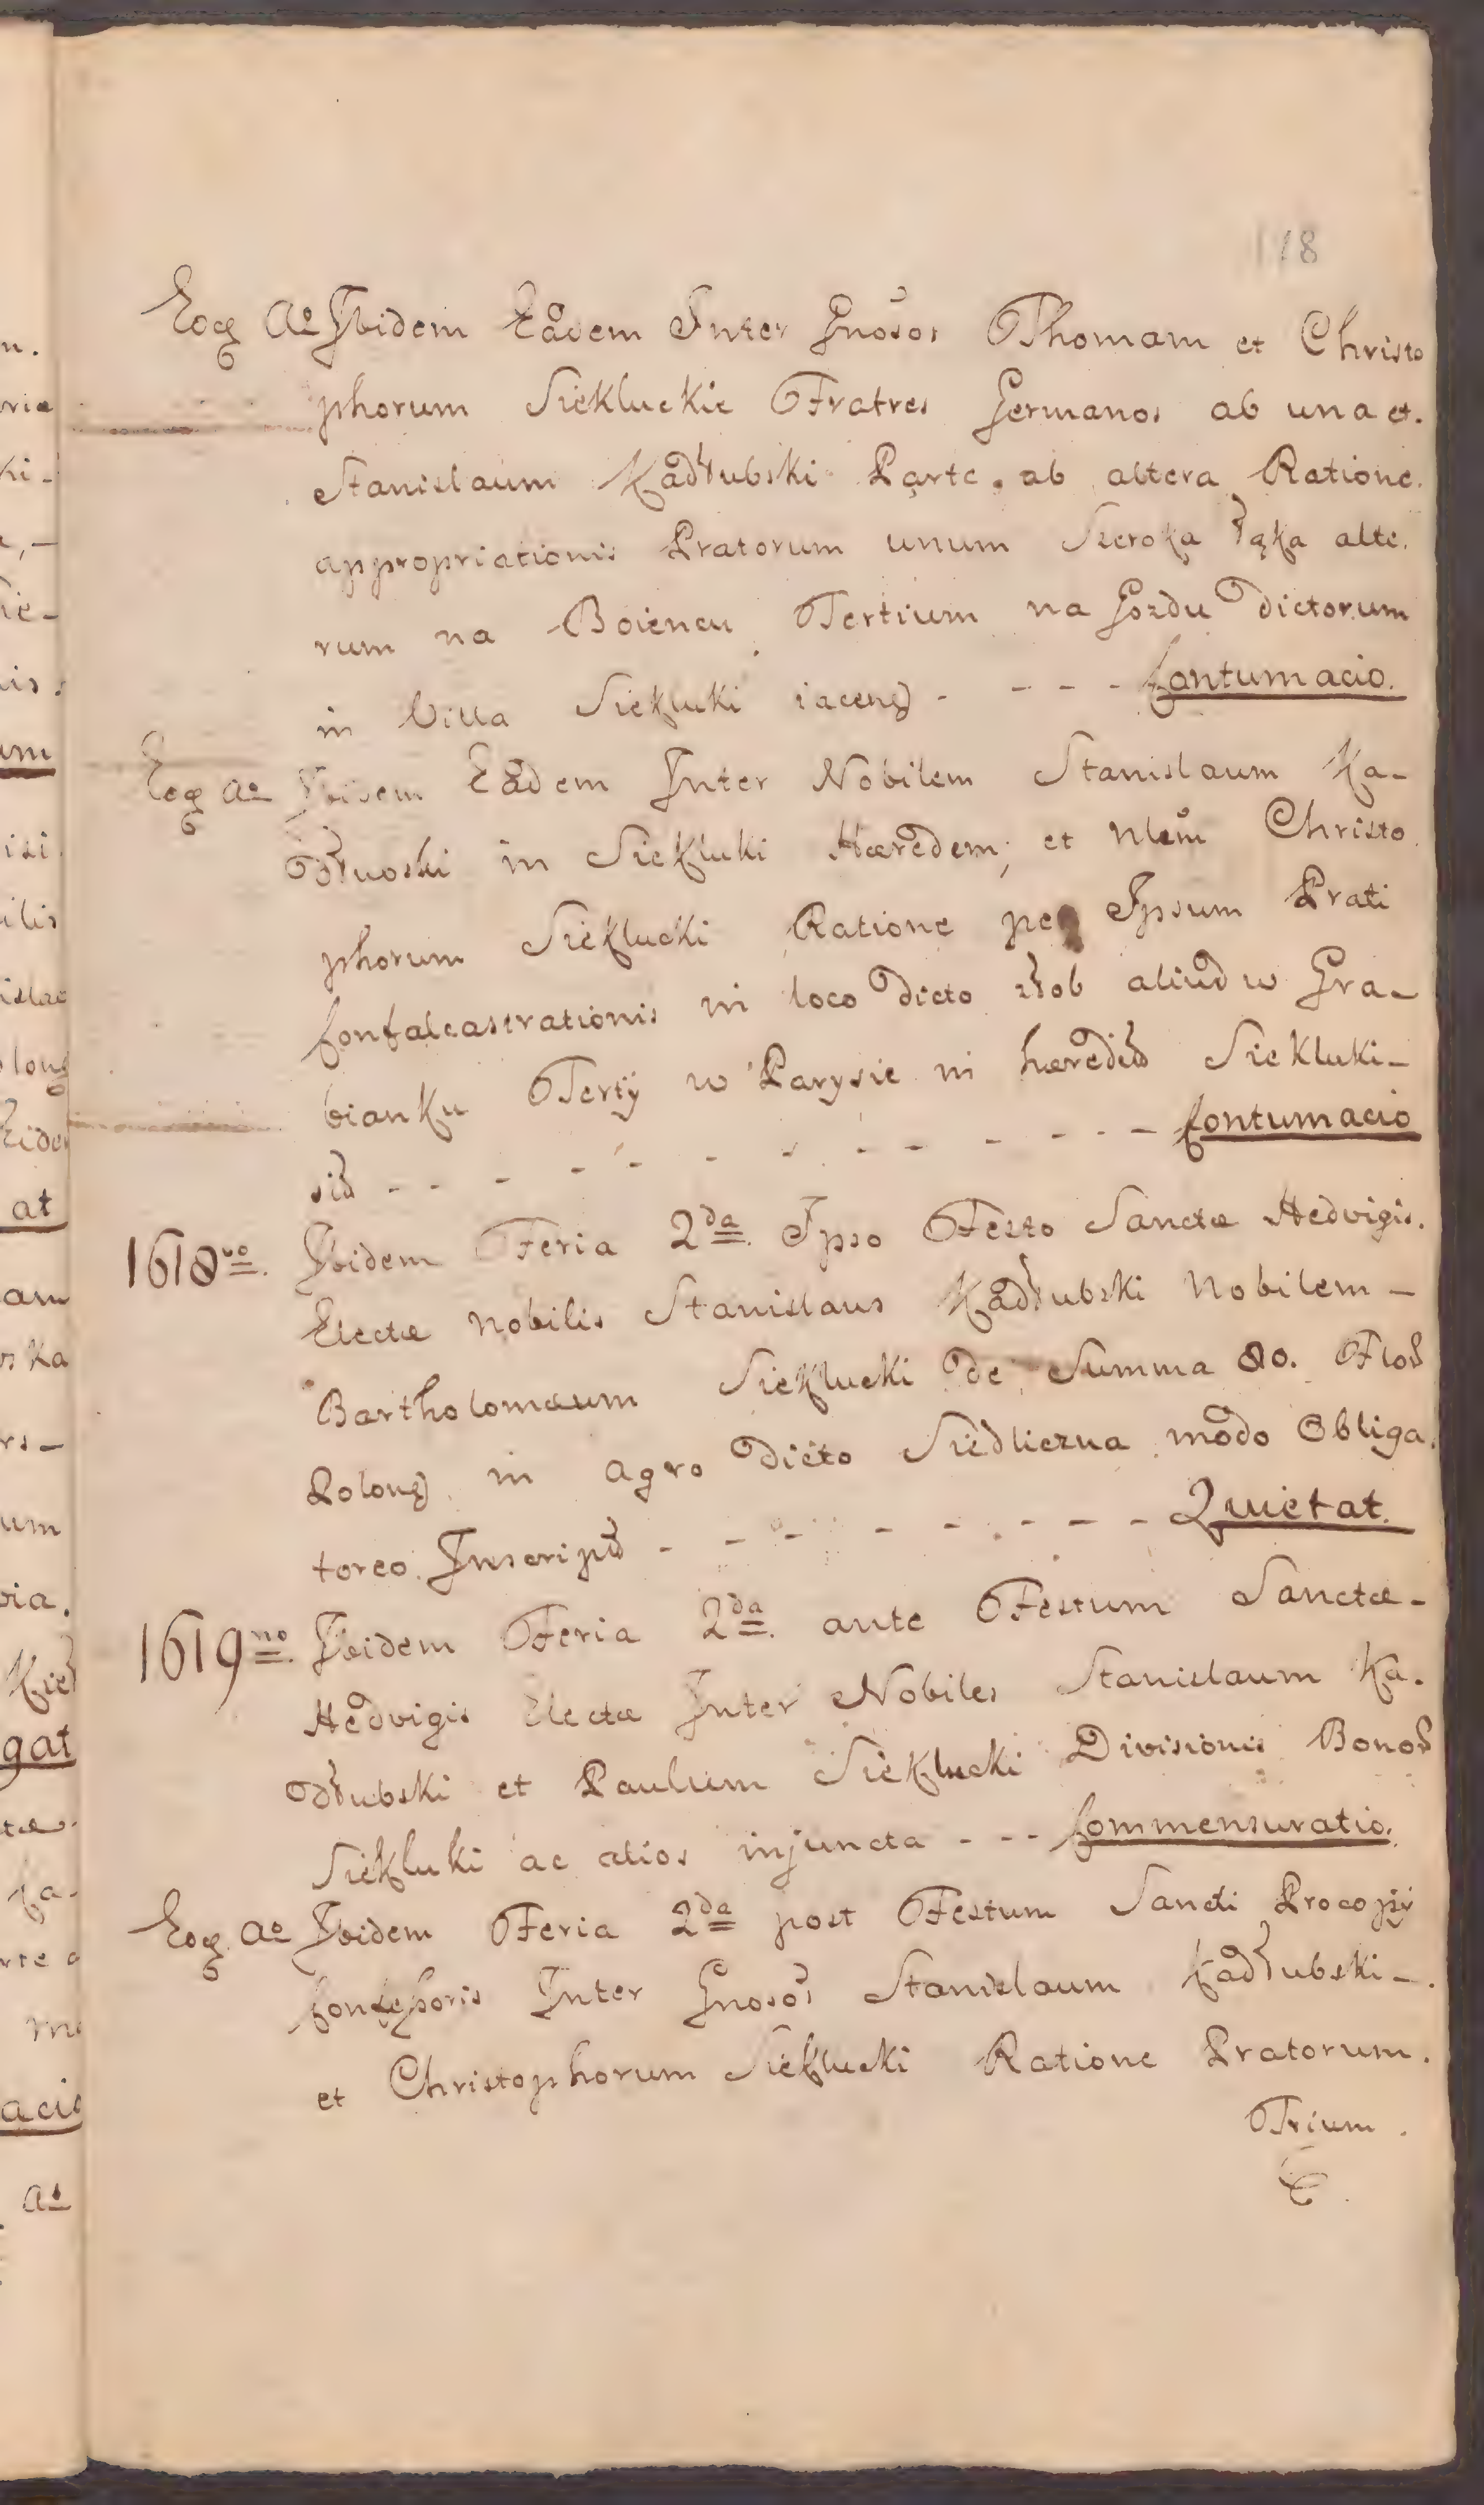 118
Eoq Ao Ibidem Eadem Inter Gnosos Thomam et Christo
phorum Siekluckie Fratres Germanos ab una et.
Stanislaum Kadłubski Parte ab altera Ratione.
appropriationis Pratorum unum Szeroka Łąka alte.
rum na Boiencu Tertium na Gozdu dictorum
in Villa Siekluki iacen - - - - Contumacio.
Eoq Ao Ibidem Eadem Inter Nobilem Stanislaum Ka-
dłuoski in Siekluki Hæredem, et Nlem Christo.
phorum Sieklucki Ratione per Ipsum Prati
Confalcastrationis in loco dicto złob aliud w Gra-
bianku Tertÿ w Parysie in hæred Siekluki-
sid - - - - - - - - - - - - Contumacio
1618vo. Ibidem Feria 2da. Ipso Festo Sanctæ Hedvigis.
Electæ Nobilis Stanislaus Kadłubski Nobilem -
Bartholomæum Sieklucki de Summa 80. Flor
Polon in agro dicto Siedliczna modo Obliga.
toreo Inscript - - - - - - - - Quietat.
1619no. Ibidem Feria 2da. ante Festum Sanctæ -
Hedvigis Electæ Inter Nobiles Stanislaum Ka.
dłubski et Paulum Sieklucki Divisionis Bonor
Siekluki ac alios injuncta - - - Commensuratio.
Eoq. Ao Ibidem Feria 2da post Festum Sancti Procopÿ
Inter Gnosos Stanislaum Kadłubski -.
et Christophorum Sieklucki Ratione Pratorum.
Trium.